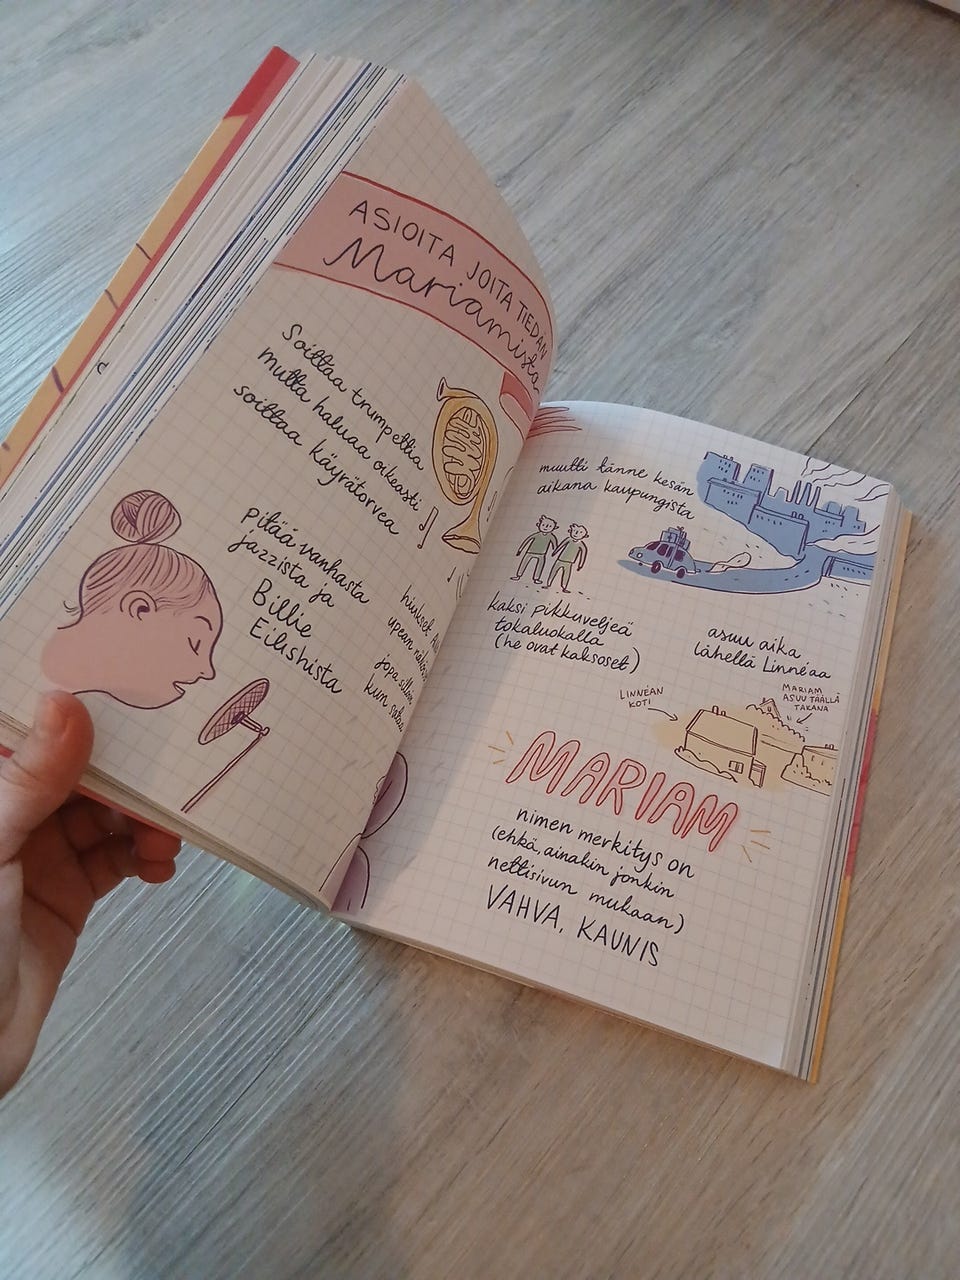 ASIOITA JOITA TIEDÄN
Mariamista
Soittaa trumpettia
mutta haluaa oikeasti
soittaa käyrätorvea
pitää vanhasta
jazzista ja
Billie
Eilishistä
hiukset
upean
jopa silloin
kun sataa
muutti tänne kesän
aikana kaupungista
kaksi pikkuveljeä
tokaluokalla
(he ovat kaksoset)
asuu aika
lähellä Linnéaa
LINNÉAN
KOTI
MARIAM
ASUU TÄÄLLÄ
TAKANA
MARIAM
nimen merkitys on
(ehkä, ainakin jonkin
nettisivun mukaan)
VAHVA, KAUNIS